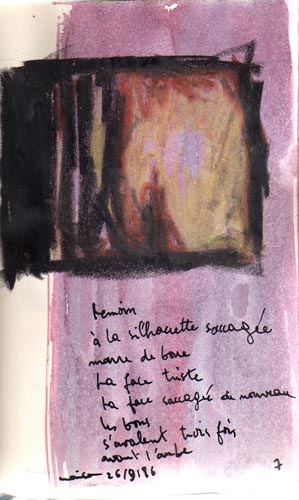 Témoin
à la silhouette saccagée
marre de boue
ta face triste
ta face saccagée de nouveau
les bons
s'avalent trois fois
avant l'aube
26/9/86
7